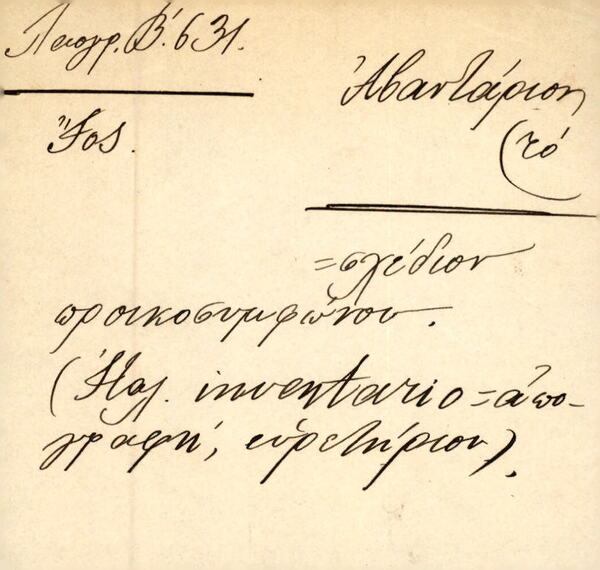 Λαογρ. Β΄. 631.
Ἀβαντάριον
(τό
Ἴος.
=σχέδιον
προικοσυμφώνου.
(Ἰταλ. inventario=ἀπο-
γραφή, εὑρετήριον).